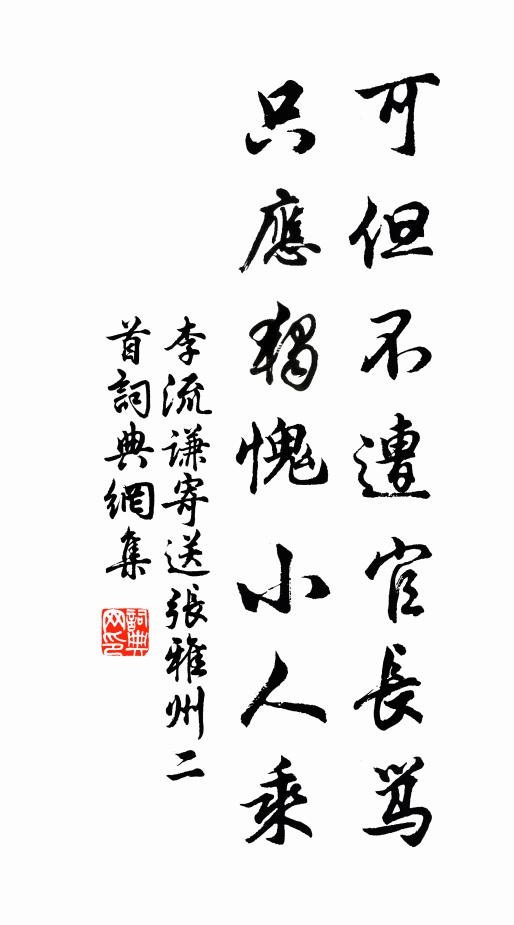 可但不遭官長骂
只應獨愧小人乘
李流謙寄送張雅州二
首詞典網集
詞典网印